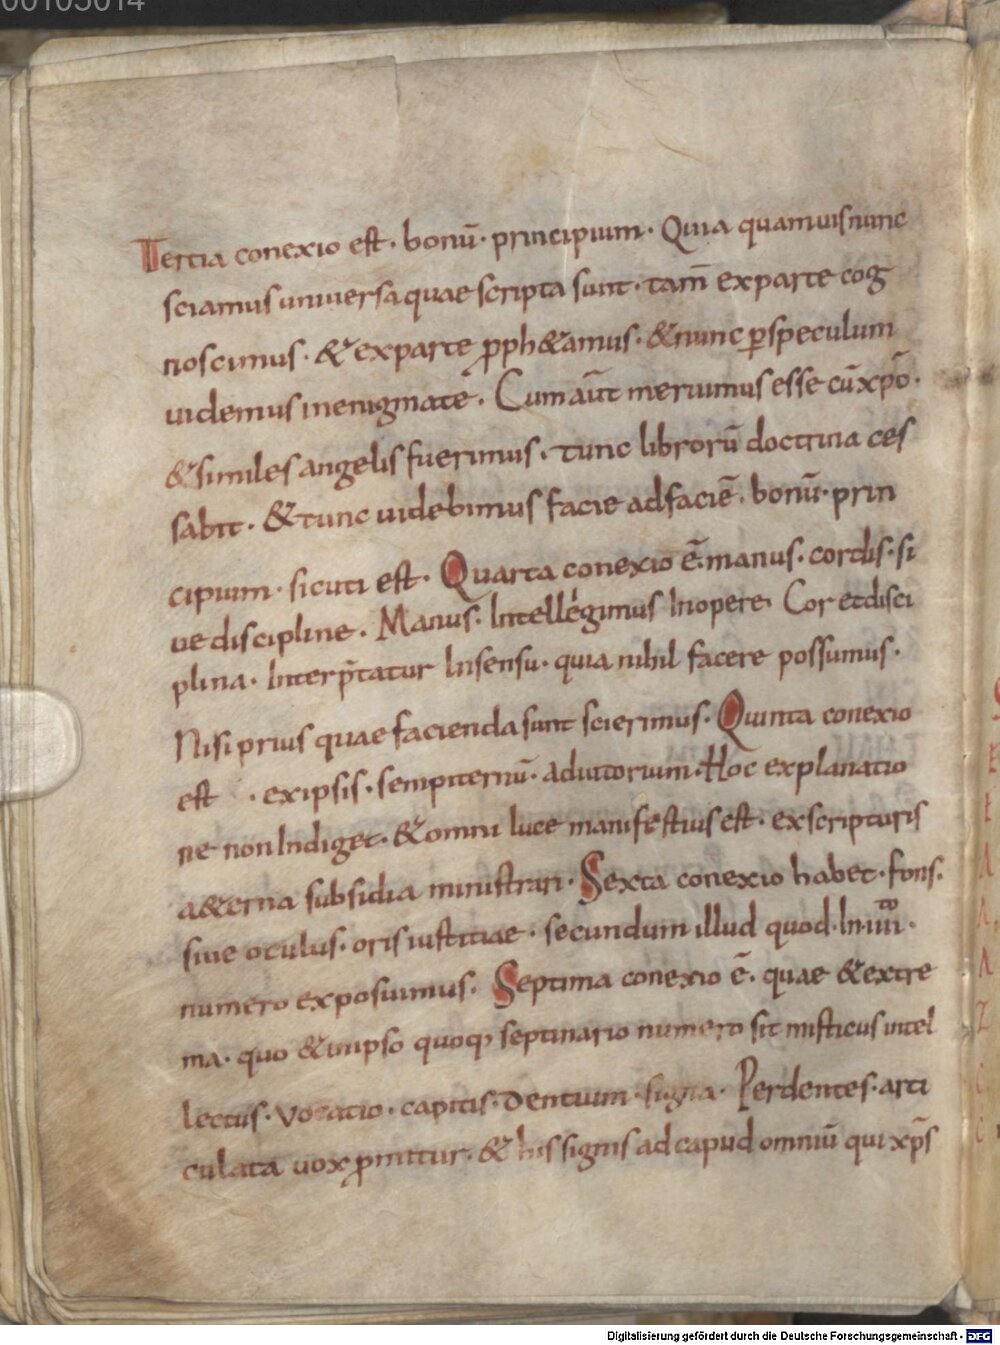 00105014
Tertia conexio est. bonū. principium. Quia quamuis nunc
sciamus uniuersa quae scripta sunt. tam̄ exparte cog
noscimus. & exparte ꝓph&amus. & nunc ꝑspeculum
uidemus inenigmate. Cum aūt meruimus esse cū xp̄o.
& similes angelis fuerimus. tunc librorū doctrina ces
sabit. & tunc uidebimus facie adfaciē. bonū. prin
cipium. sicuti est. Quarta conexio ē. manus. cordis. si
ue discipline. Manus. Intellegimus Inopere. Cor et disci
plina. Interp̄tatur Insensu. quia nihil facere possumus.
Nisi prius quae facienda sunt scierimus. Quinta conexio
est . exipsis. sempiternū. adiutorium. Hoc explanatio
ne non Indiget. & omni luce manifestius est. exscripturis
a&erna subsidia ministrari. Sexta conexio habet. fons.
siue oculus. oris iustitiae. secundum illud quod. In. iiii̅to.
numero exposuimus. Septima conexio ē. quae & extre
ma. quo & inipso quoq; septinario numero sit misticus intel
lectus. Vocatio. capitis. dentium. signa. Per dentes. arti
culata uox ꝓmitur. & his signis ad capud omniū qui xp̄s
Digitalisierung gefördert durch die Deutsche Forschungsgemeinschaft - DFG